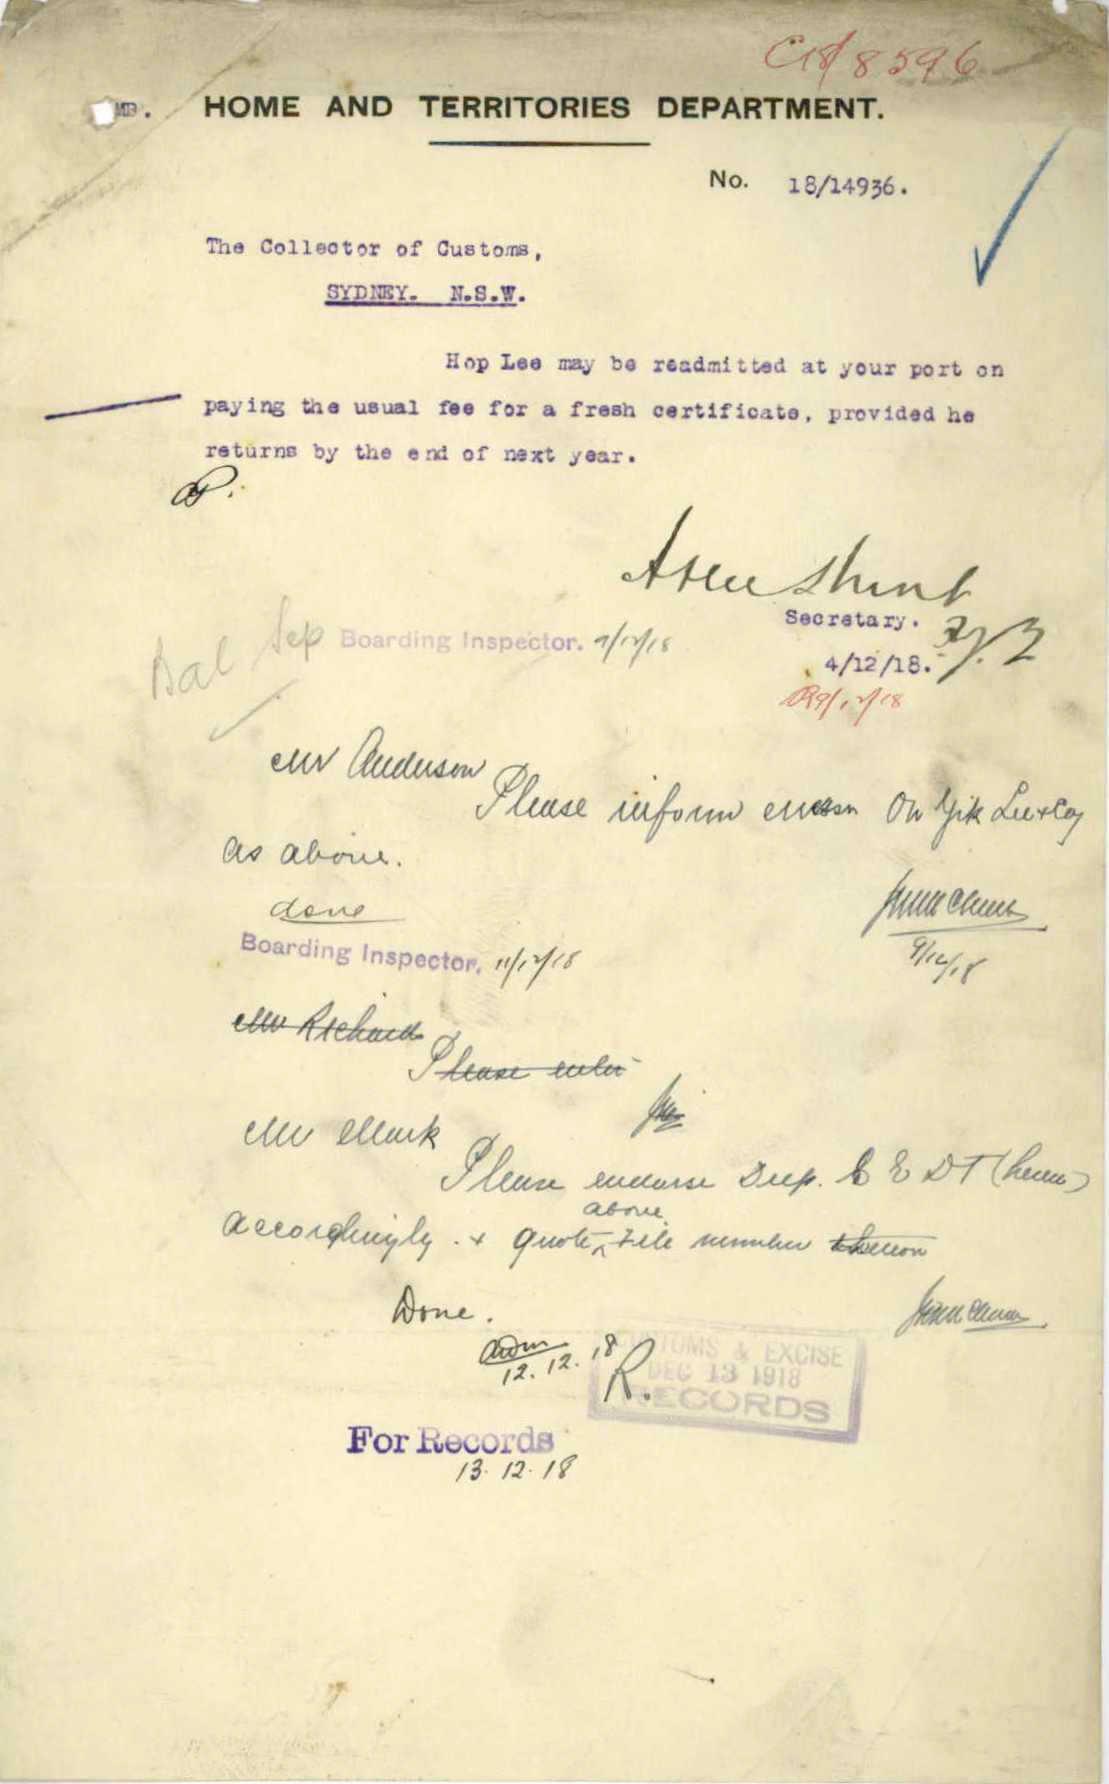 C18/8596
HOME AND TERRITORIES DEPARTMENT.
No. 18/14936.
The Collector of Customs,
SYDNEY. N.S.W.
Hop Lee may be readmitted at your port on
paying the usual fee for a fresh certificate, provided he
returns by the end of next year.
Atlee Hunt
Secretary.
4/12/18.
Boarding Inspector. 9/12/18
9/12/18
Mr Anderson
Please inform On Yik Lee & Coy
as above.
done
9/12/18
Boarding Inspector. 11/12/18
Mr Richards
Please enter
Mr Mark
Please endorse Dup. C E D T (herein)
above
accordingly. & quote file number thereon
Done.
12.12.18
R.
CUSTOMS & EXCISE
DEC 13 1918
RECORDS
For Records
13.12.18